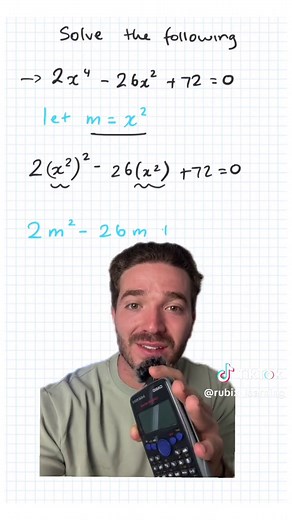 Solve the following
→ 2x⁴ - 26x² + 72 = 0
let m = x²
2(x²)² - 26(x²) + 72 = 0
2m² - 26m
@rubi